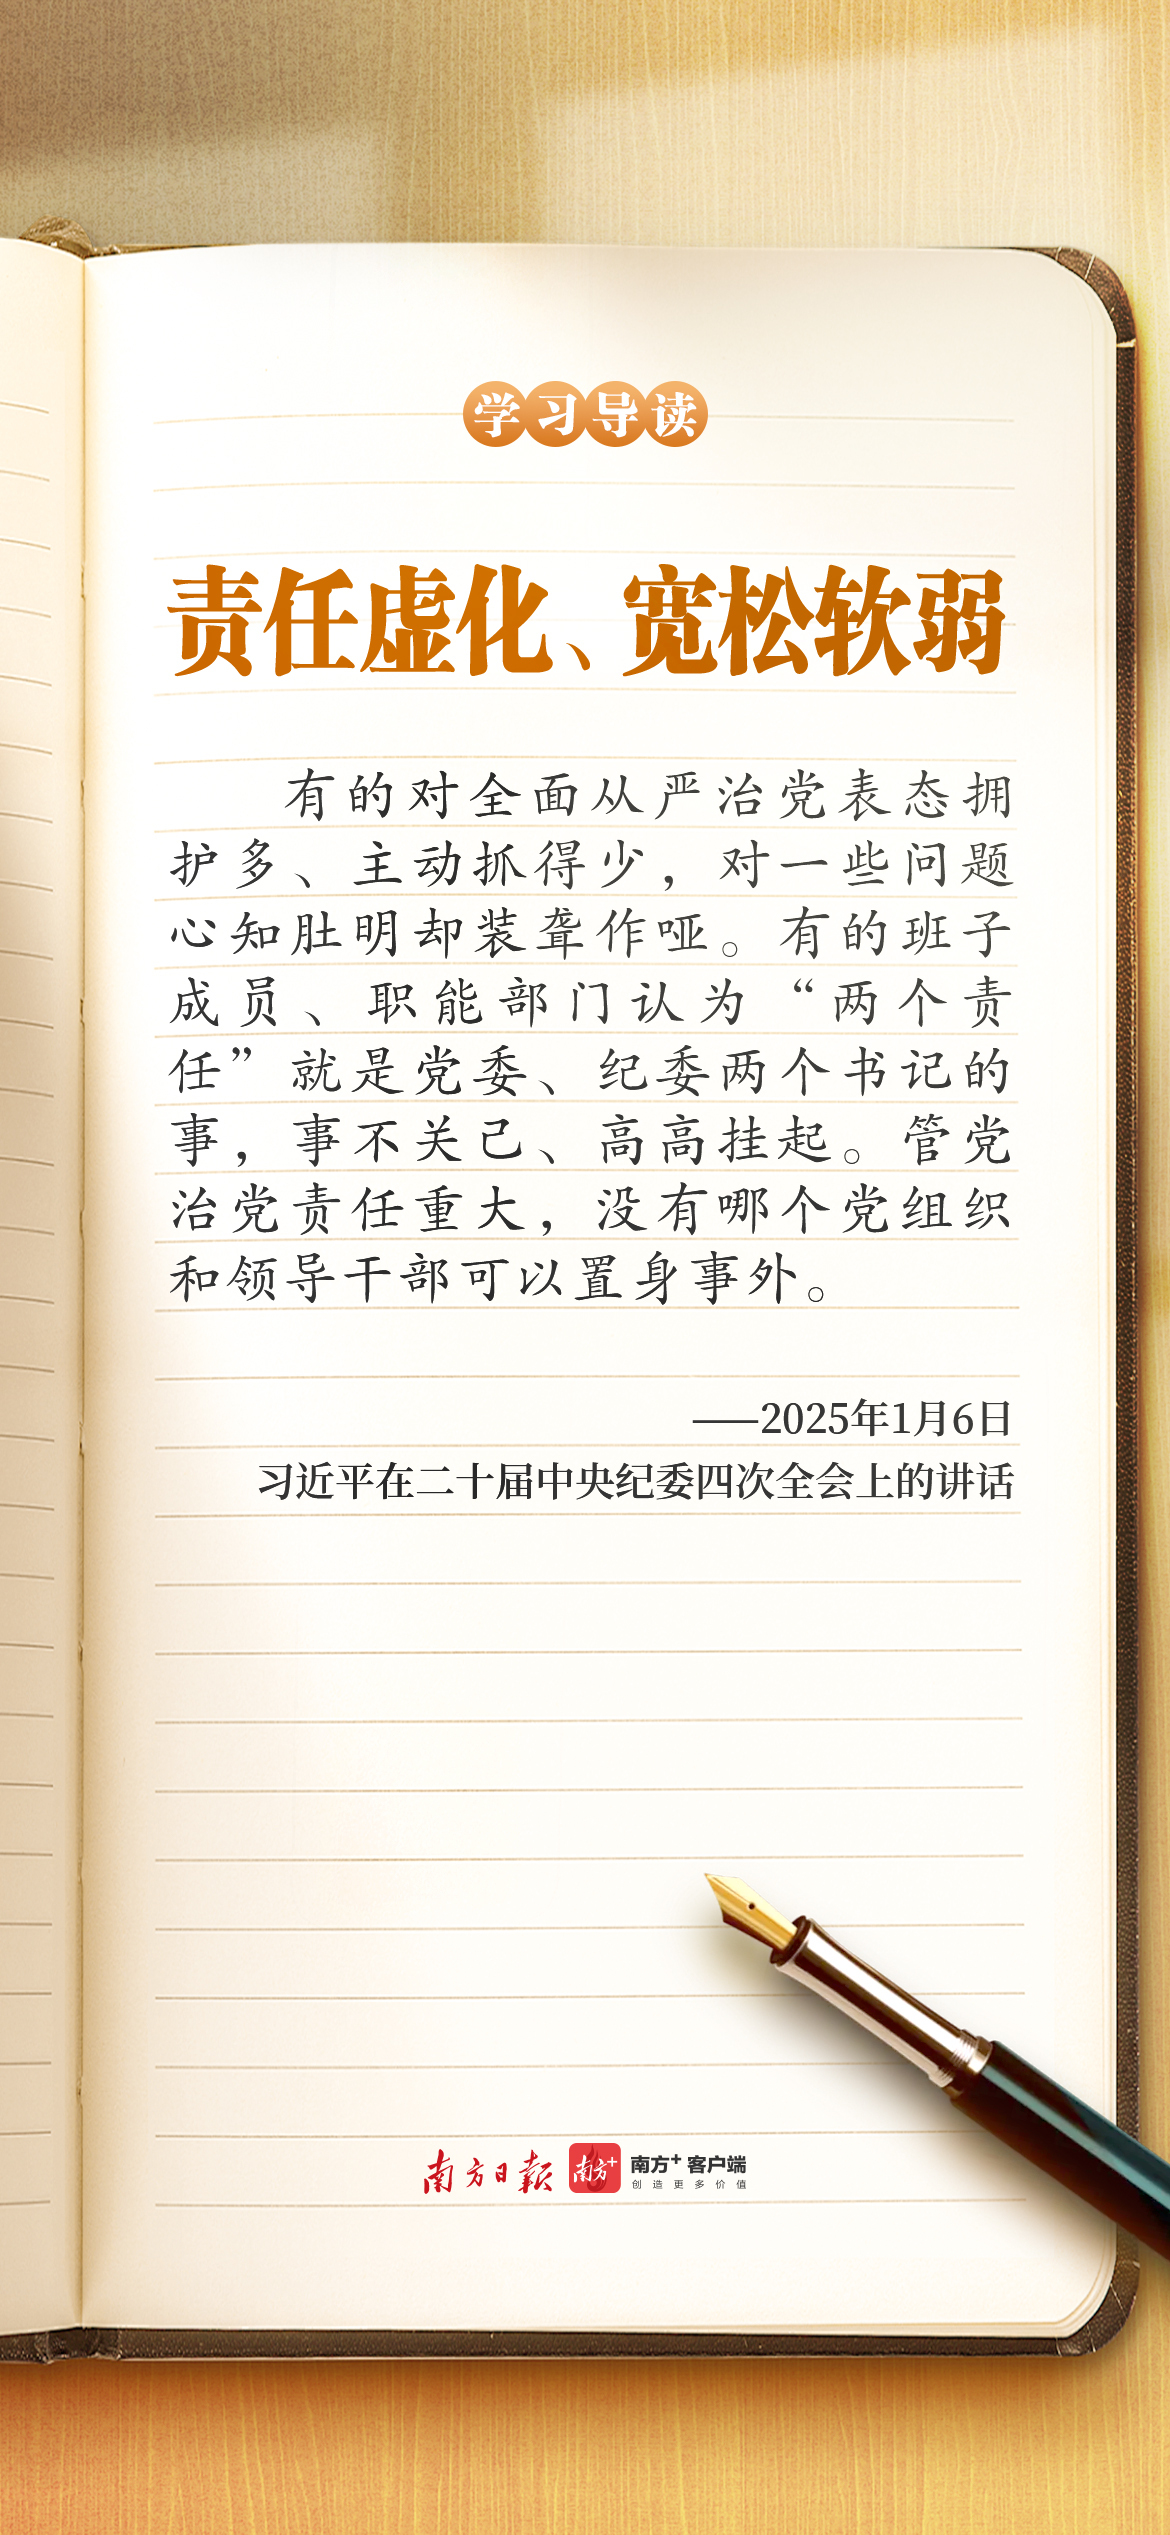 学习导读
责任虚化、宽松软弱
有的对全面从严治党表态拥
护多、主动抓得少，对一些问题
心知肚明却装聋作哑。有的班子
成员、职能部门认为“两个责
任”就是党委、纪委两个书记的
事，事不关己、高高挂起。管党
治党责任重大，没有哪个党组织
和领导干部可以置身事外。
——2025年1月6日
习近平在二十届中央纪委四次全会上的讲话
南方日报 南方+ 南方+客户端
创造更多价值